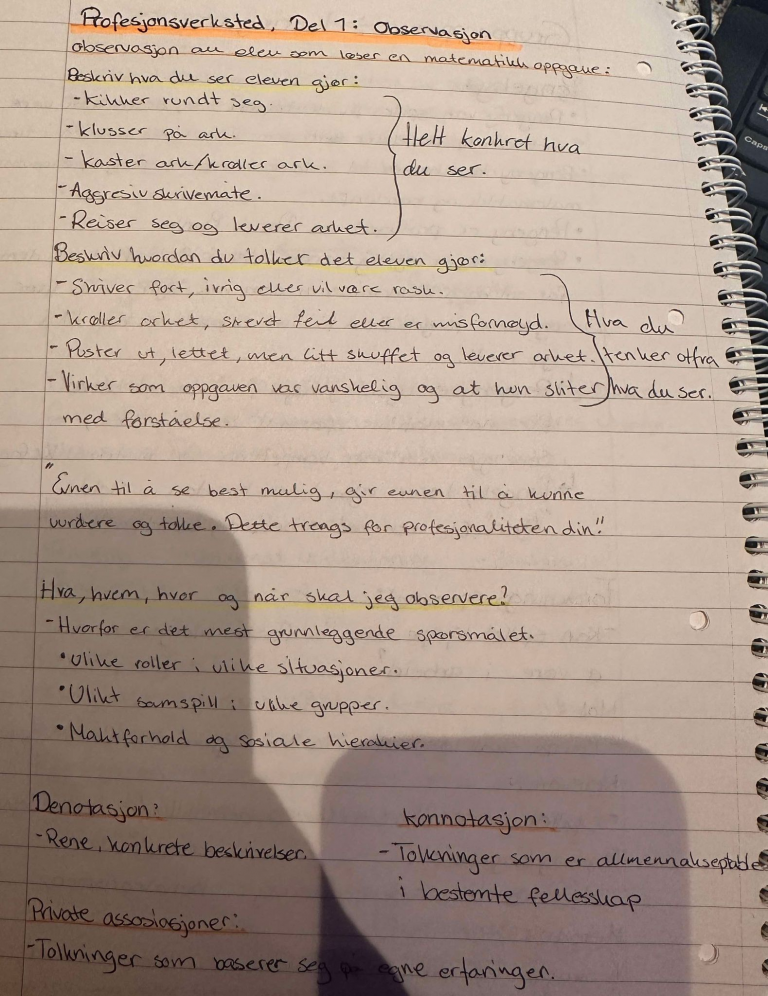 Profesjonsverksted, Del 1: Observasjon
observasjon av elev som løser en matematikk oppgave:
Beskriv hva du ser eleven gjør:
- Kikker rundt seg.
- Klusser på ark.
- Kaster ark/krøller ark.
- Aggresiv skrivemåte.
- Reiser seg og leverer arket.
Helt konkret hva
du ser.
Beskriv hvordan du tolker det eleven gjør:
- Skriver fort, ivrig eller vil være rask.
- krøller arket, skrevet feil eller er misfornøyd.
- Puster ut, lettet, men litt skuffet og leverer arket.
- Virker som oppgaven var vanskelig og at hun sliter
med forståelse.
Hva du
tenker utfra
hva du ser.
"Evnen til å se best mulig, gir evnen til å kunne
vurdere og tolke. Dette trengs for profesjonaliteten din!"
Hva, hvem, hvor og når skal jeg observere?
- Hvorfor er det mest grunnleggende spørsmålet.
• Ulike roller i ulike situasjoner.
• Ulikt samspill i ulike grupper.
• Maktforhold og sosiale hierakier.
Denotasjon:
- Rene, konkrete beskrivelser.
konnotasjon:
- Tolkninger som er allmennakseptable
i bestemte fellesskap
Private assosiasjoner:
- Tolkninger som baserer seg på egne erfaringer.
Caps